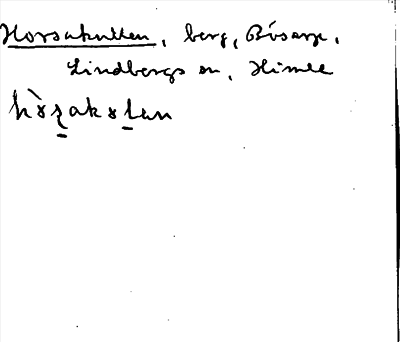 Horsakullen, berg, Bösarp,
Lindbergs sn, Himle
hòrzakolan